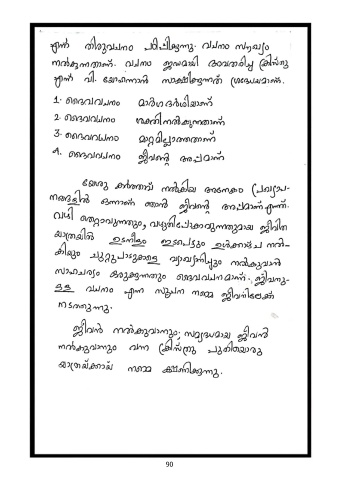 എന്ന് തിരുവചനം പഠിപ്പിക്കുന്നു. വചനം സൗഖ്യം
നൽകുന്നതാണ്. വചനം ജഡമായി അവതരിച്ച ക്രിസ്തു
എന്ന് വി. യോഹന്നാൻ സാക്ഷിക്കുന്നത് ശ്രദ്ധേയമാണ്.
1. ദൈവവചനം മാർഗദർശിയാണ്
2. ദൈവവചനം ശക്തിനൽകുന്നതാണ്
3. ദൈവവചനം മാറ്റമില്ലാത്തതാണ്
4. ദൈവവചനം ജീവന്റെ അപ്പമാണ്
യേശു കർത്താവ് നൽകിയ അനേകം പ്രഖ്യാപ-
നങ്ങളിൽ ഒന്നാണ് ഞാൻ ജീവന്റെ അപ്പമാണ് എന്ന്.
വഴി തെറ്റാവുന്നതും, വഴുതിപ്പോകാവുന്നതുമായ ജീവിത
യാത്രയിൽ ഉടനീളം ഇടപെട്ടും ഉൾക്കാഴ്ച നൽ-
കിയും ചുറ്റുപാടുകളെ വ്യാഖ്യാനിച്ചും നൽകുവാൻ
സാഹചര്യം ഒരുക്കുന്നതും ദൈവവചനമാണ്. ജീവനു-
ള്ള വചനം എന്ന സൂചന നമ്മെ ജീവനിലേക്ക്
നടത്തുന്നു.
ജീവൻ നൽകുവാനും; സമൃദ്ധമായ ജീവൻ
നൽകുവാനും വന്ന ക്രിസ്തു പുതിയൊരു
യാത്രയ്ക്കായ് നമ്മെ ക്ഷണിക്കുന്നു.
90